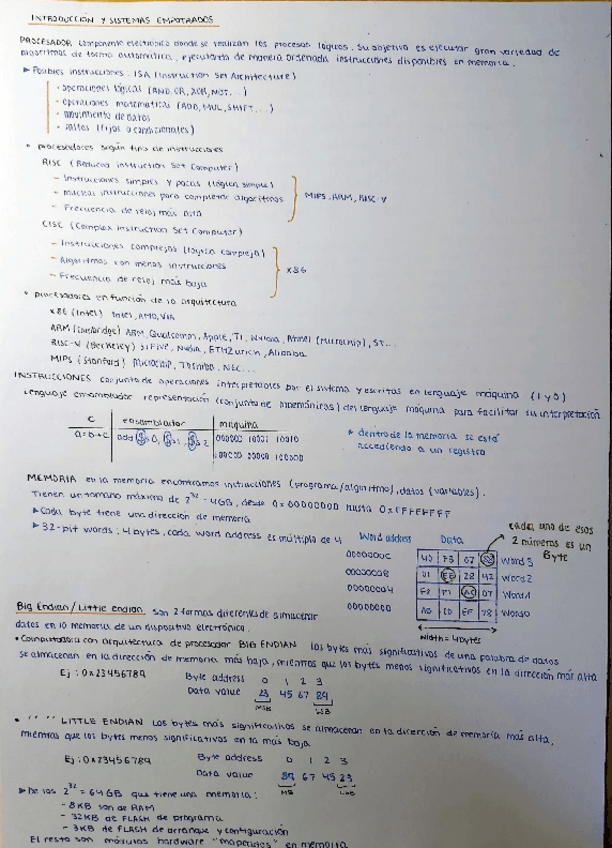 INTRODUCCIÓN Y SISTEMAS EMPOTRADOS
PROCESADOR componente electrónico donde se realizan los procesos lógicos. Su objetivo es ejecutar gran variedad de
algoritmos de forma automática, ejecutando de manera ordenada instrucciones disponibles en memoria.
▶ Posibles instrucciones: ISA (Instruction Set Architecture)
· operaciones lógicas (AND, OR, XOR, NOT...)
· operaciones matemáticas (ADD, MUL, SHIFT...)
· movimiento de datos
· saltos (fijos o condicionales)
• procesadores según tipo de instrucciones
RISC (Reduced Instruction Set Computer)
- Instrucciones simples y pocas (lógica simple)
- muchas instrucciones para completar algoritmos
- Frecuencia de reloj más alta
MIPS, ARM, RISC-V
CISC (Complex Instruction Set Computer)
- Instrucciones complejas (lógica compleja)
- Algoritmos con menos instrucciones
- Frecuencia de reloj más baja
x86
• procesadores en función de la arquitectura
x86 (Intel) Intel, AMD, VIA
ARM (Cambridge) ARM, Qualcomm, Apple, TI, Nvidia, Atmel (Microchip), ST...
RISC-V (Berkeley) SiFive, Nvidia, ETHZurich, Alibaba
MIPS (Stanford) Microchip, Toshiba, NEC...
INSTRUCCIONES conjunto de operaciones interpretables por el sistema y escritas en lenguaje máquina (1 y 0)
Lenguaje ensamblador representación (conjunto de mnemónicos) del lenguaje máquina para facilitar su interpretación
C ensamblador máquina
a=b+c add $s0, $s1, $s2 000000 10001 10010
00000 100000
* dentro de la memoria se está
accediendo a un registro
MEMORIA en la memoria encontramos instrucciones (programa/algoritmo), datos (variables).
Tienen un tamaño máximo de 2^32 - 4GB, desde 0x00000000 hasta 0xFFFFFFFF
▶ Cada byte tiene una dirección de memoria
▶ 32-bit words: 4 bytes, cada word address es múltiplo de 4
cada uno de esos
2 números es un
Byte
Word address Data
0000000C 40 F3 07 Word 3
00000008 01 EE 28 42 Word 2
00000004 F2 F1 AC 07 Word 1
00000000 AB CD EF 78 Word 0
Width = 4 bytes
Big Endian / Little endian son 2 formas diferentes de almacenar
datos en la memoria de un dispositivo electrónico.
• Computadora con arquitectura de procesador BIG ENDIAN los bytes más significativos de una palabra de datos
se almacenan en la dirección de memoria más baja, mientras que los bytes menos significativos en la dirección más alta
Ej: 0x23456789 Byte address 0 1 2 3
Data value 23 45 67 89
MSB LSB
• " " " LITTLE ENDIAN Los bytes más significativos se almacenan en la dirección de memoria más alta,
mientras que los bytes menos significativos en la más baja
Ej: 0x23456789 Byte address 0 1 2 3
Data value 89 67 45 23
▶ De los 2^32 = 64GB que tiene una memoria:
- 8KB son de RAM
- 32KB de FLASH de programa
- 3KB de FLASH de arranque y configuración
El resto son módulos hardware "mapeados" en memoria